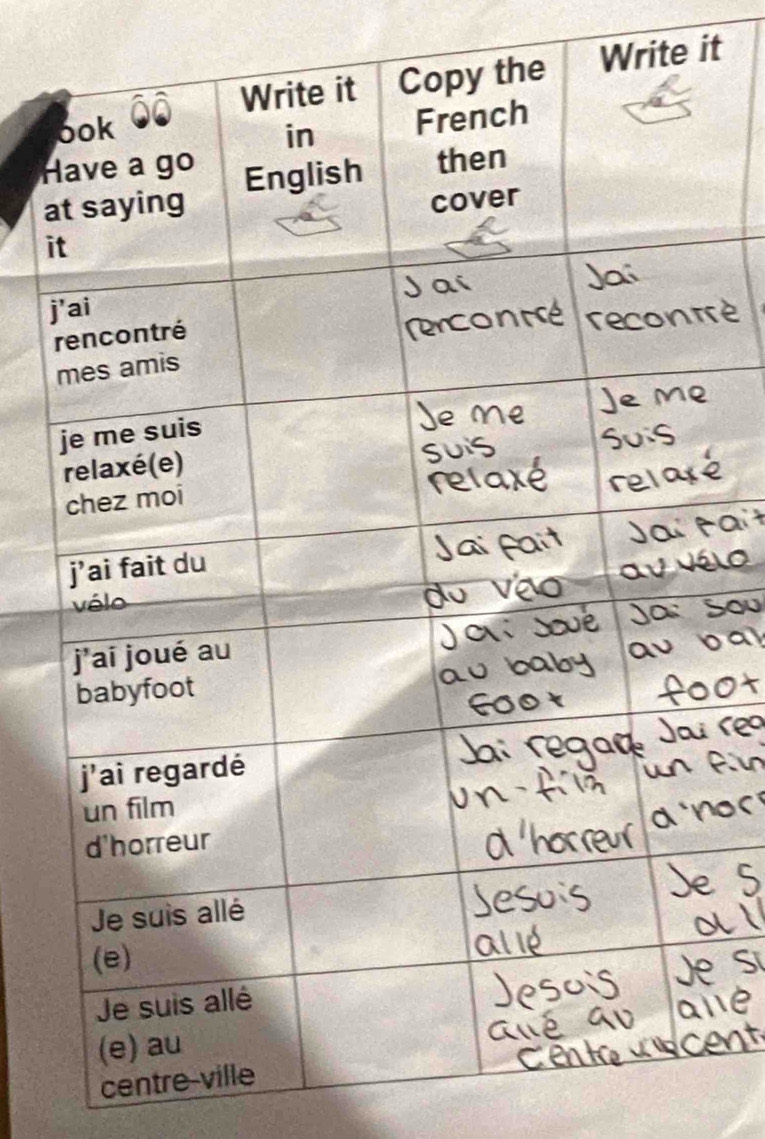 ook
Have a go
at saying
it
Write it
in
English
Copy the
French
then
cover
Write it
j'ai
rencontré
mes amis
Jai
renconrré
Jai
reconrrè
je me suis
relaxé(e)
chez moi
Je me
suis
relaxé
Je me
suis
relaxé
j'ai fait du
vélo
Jai fait
du vélo
Jai fait
au vélo
j'ai joué au
babyfoot
Jai joué
au baby
foot
Jai
au
foot
j'ai regardé
un film
d'horreur
Jai
un film
d'horreur
Jai
un
Je suis allé
(e)
Jesuis
allé
Je S
all
Je suis allé
(e) au
centre-ville
Jesuis
allé au
centre
Je
allé
cent